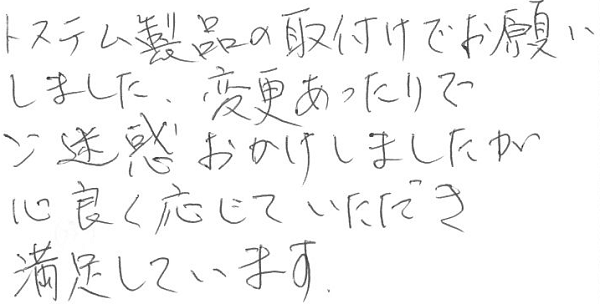 トステム製品の取付けでお願い
しました、変更あったりで
ご迷惑おかけしましたが
心良く応じていただき
満足しています.